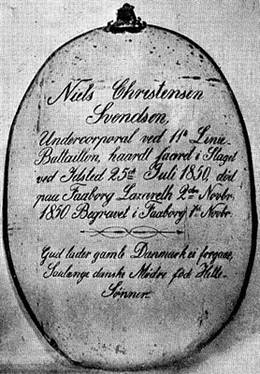 Niels Christensen
Svendsen,
Undercorporal ved 11te Linie-
Battaillon, haardt saaret i Slaget
ved Idsted 25de Juli 1850, död
paa Faaborg Lazareth 2den Novbr.
1850 Begravet i Faaborg Novbr.
Gud lader gamle Danmark ei forgaae,
Saalænge danske Mödre föde Helte-
Sönner.